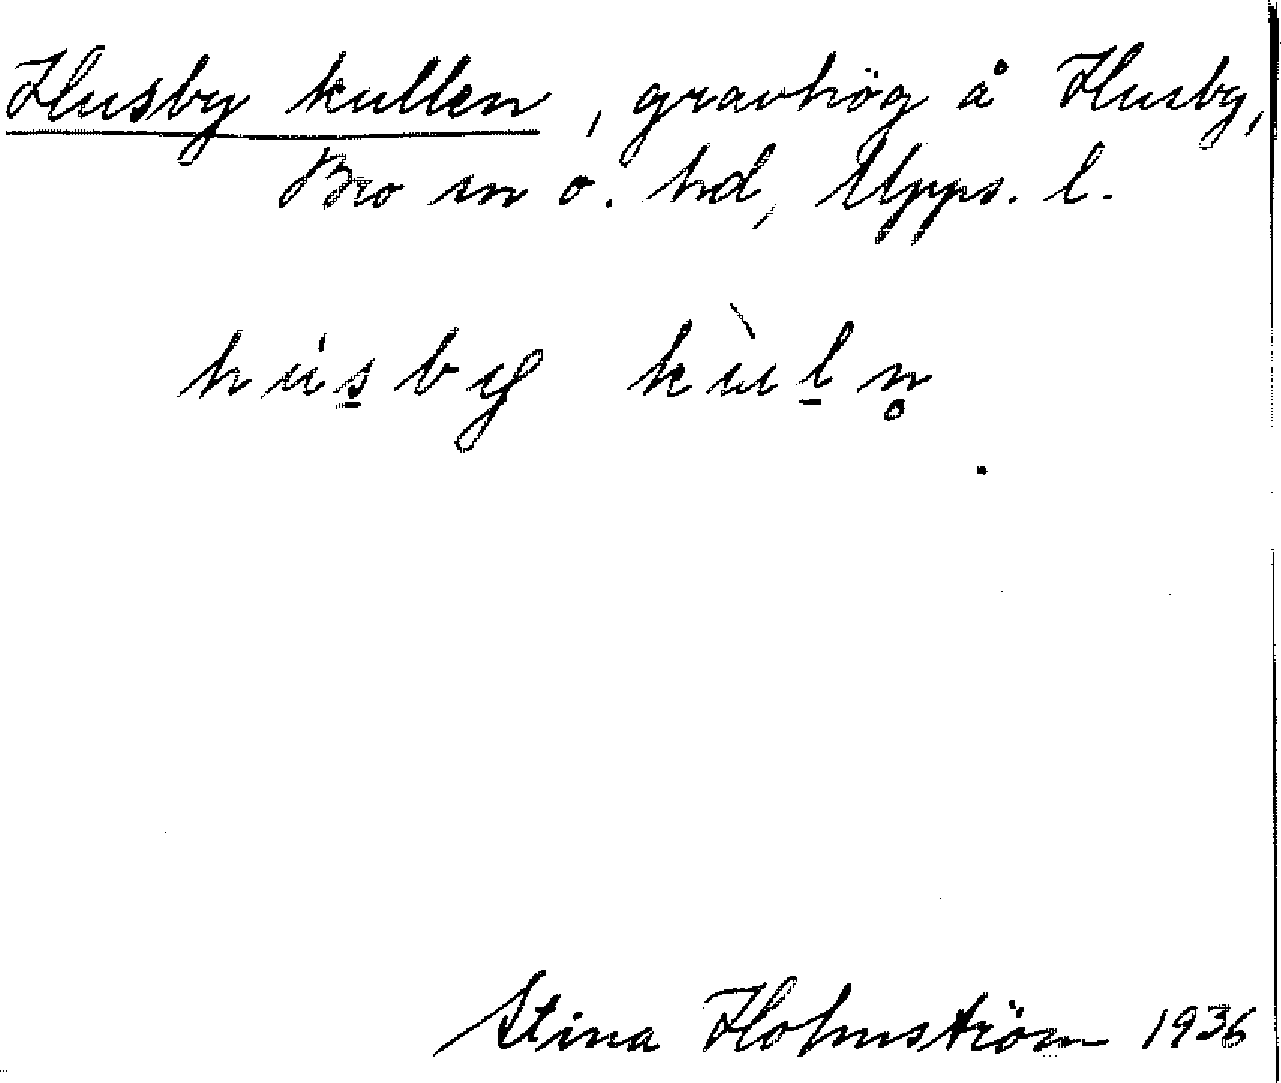 Husby kullen, gravhög å Husby,
Bro sn o. hd, Upps. l.
hús̲by kùl̲n̥
Stina Holmström 1936